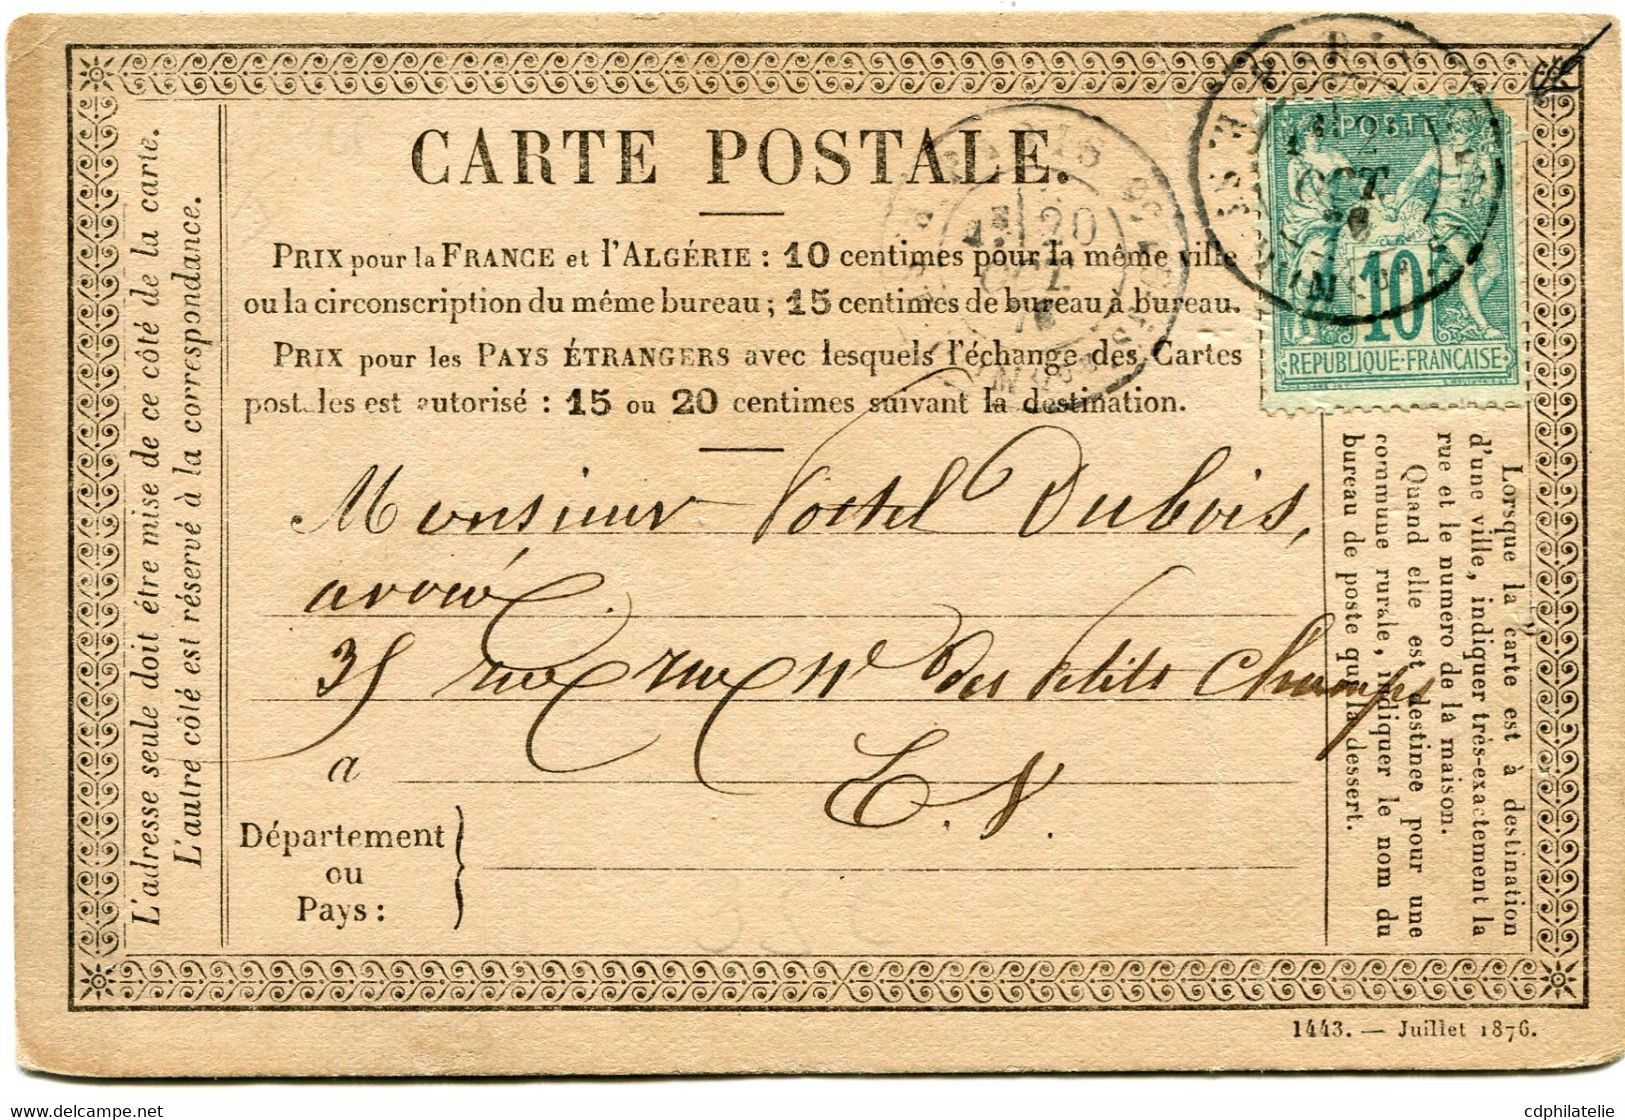 CARTE POSTALE.
PRIX pour la FRANCE et l'ALGÉRIE : 10 centimes pour la même ville
ou la circonscription du même bureau ; 15 centimes de bureau à bureau.
PRIX pour les PAYS ÉTRANGERS avec lesquels l'échange des Cartes
postales est autorisé : 15 ou 20 centimes suivant la destination.
L'adresse seule doit être mise de ce côté de la carte.
L'autre côté est réservé à la correspondance.
PARIS
20
OCT.
POSTE
OCT.
10
REPUBLIQUE·FRANÇAISE
Monsieur Dubois,
avoué
35 rue des Petits Champs
à E. V.
Département
ou
Pays :
Lorsque la carte est à destination
d'une ville, indiquer très-exactement la
rue et le numero de la maison.
Quand elle est destinée pour une
commune rurale, indiquer le nom du
bureau de poste qui la dessert.
1443. — Juillet 1876.
cdphilatelie